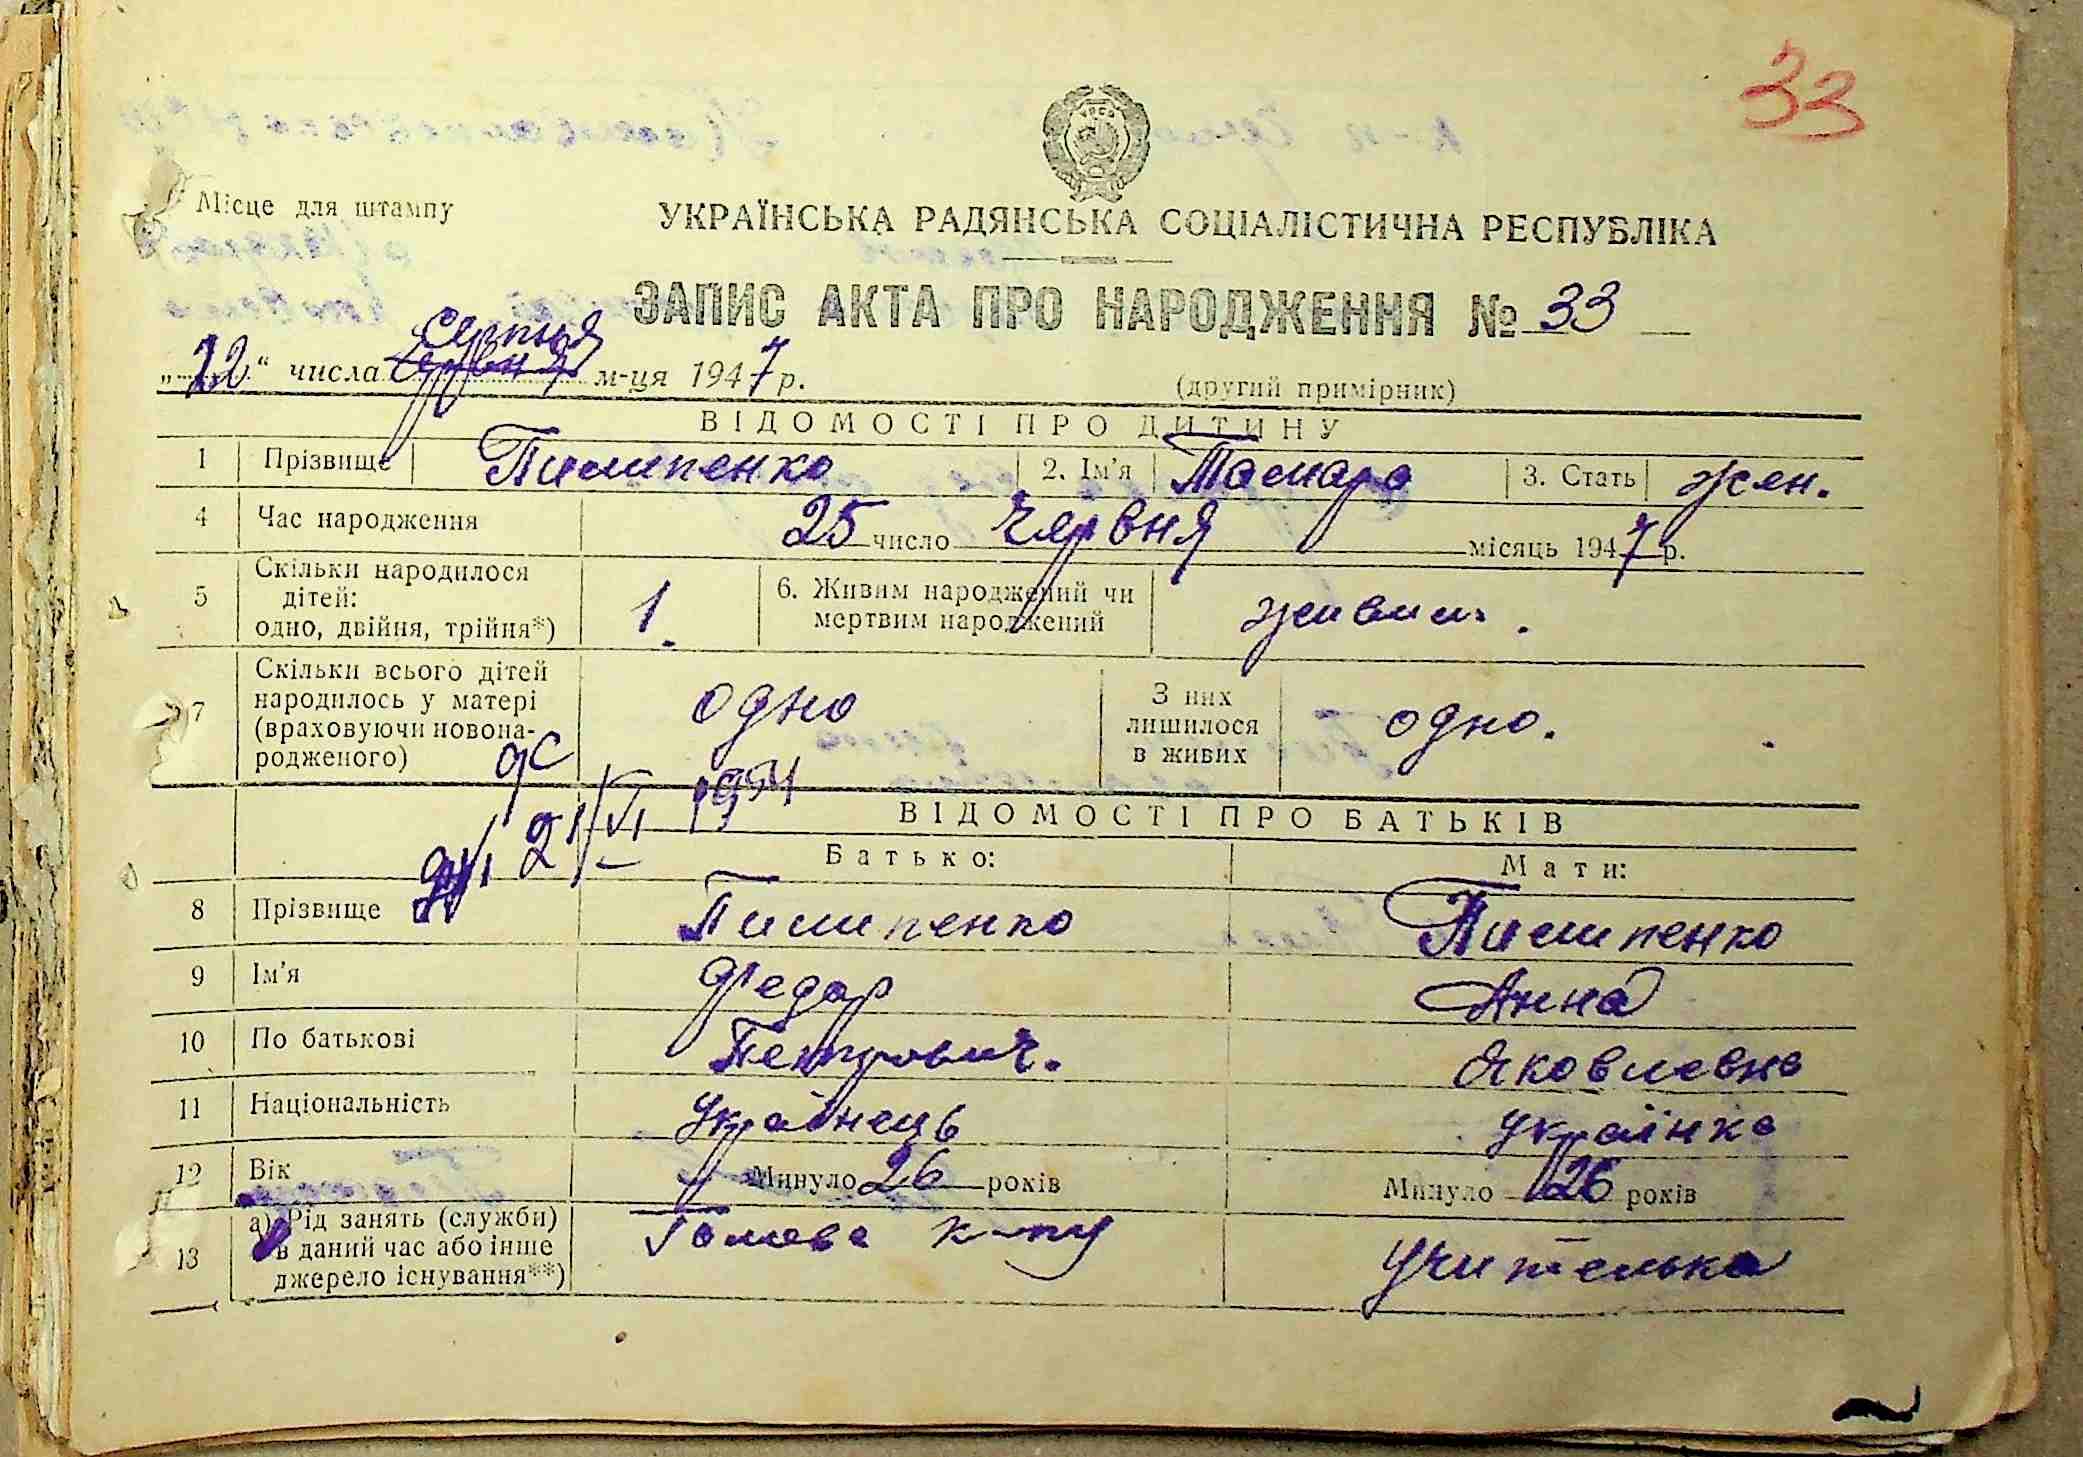 33
Місце для штампу
УКРАЇНСЬКА РАДЯНСЬКА СОЦІАЛІСТИЧНА РЕСПУБЛІКА
ЗАПИС АКТА ПРО НАРОДЖЕННЯ № 33
Серпня
„12“ числа Червня м-ця 1947 р.
(другий примірник)
ВІДОМОСТІ ПРО ДИТИНУ
1 Прізвище Пилипенко 2. Ім'я Тамара 3. Стать жен.
4 Час народження 25 число Червня місяць 1947 р.
5 Скільки народилося дітей: одно, двійня, трійня*) 1. 6. Живим народжений чи мертвим народжений живим.
7 Скільки всього дітей народилось у матері (враховуючи новонародженого) одно З них лишилося в живих одно.
21/VI 1954
ВІДОМОСТІ ПРО БАТЬКІВ
Батько: Мати:
8 Прізвище Пилипенко Пилипенко
9 Ім'я Федор Анна
10 По батькові Петрович. Яковлевна
11 Національність українець українка
12 Вік Минуло 26 років Минуло 26 років
13 а) Рід занять (служби) в даний час або інше джерело існування**) Голова к-пу Учителька